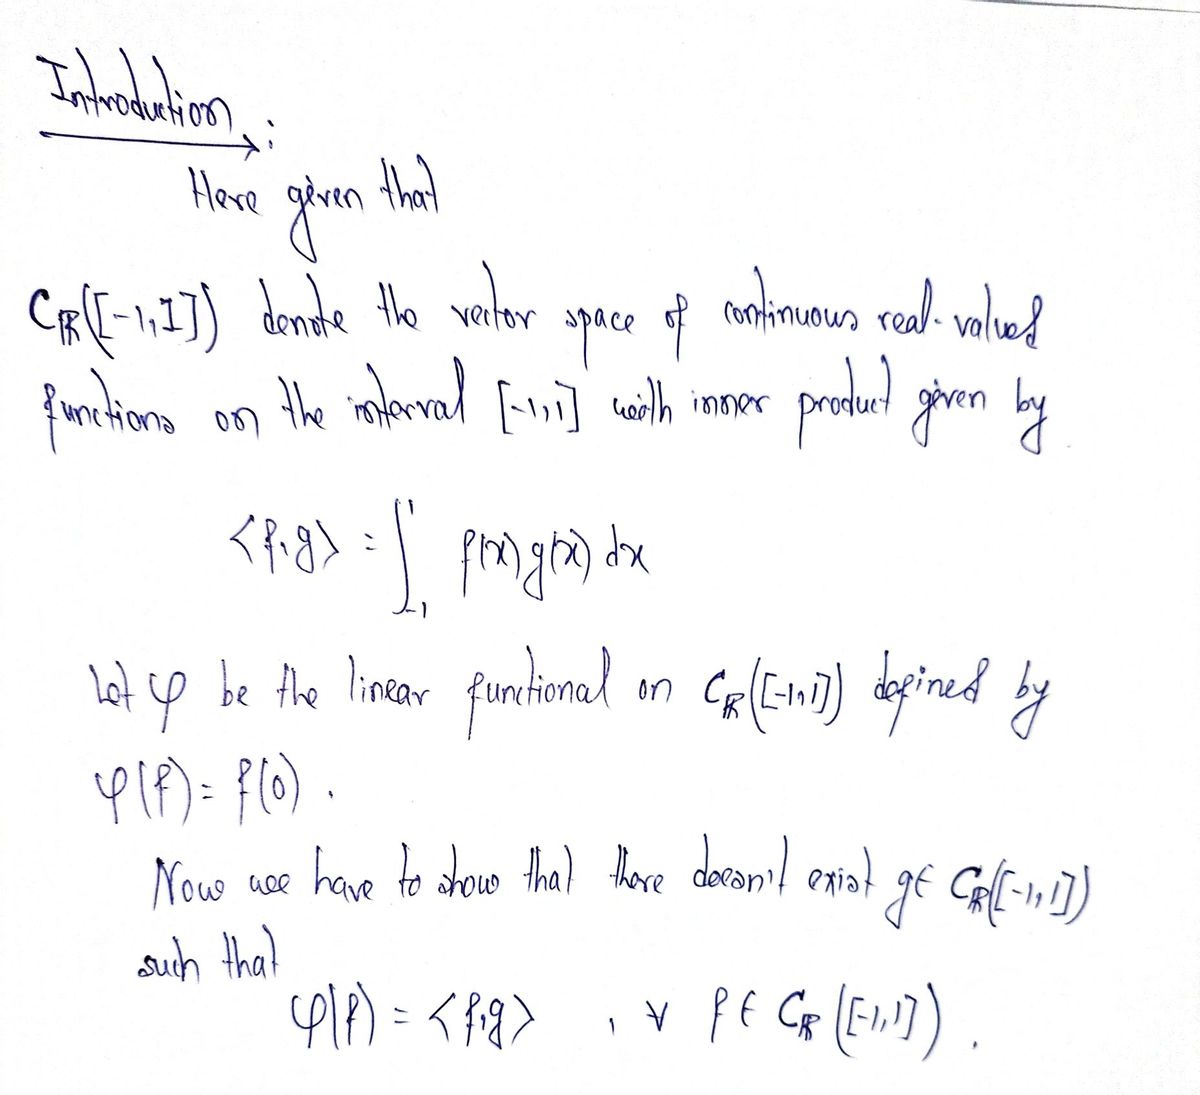 Introduction:
Here given that
C_ℝ([-1,I]) denote the vector space of continuous real-valued
functions on the interval [-1,1] with inner product given by
<f,g> = ∫_{-1}^{1} f(x) g(x) dx
Let φ be the linear functional on C_ℝ([-1,1]) defined by
φ(f) = f(0).
Now we have to show that there doesn't exist g∈ C_ℝ([-1,1])
such that
φ(f) = <f,g> , ∀ f ∈ C_ℝ([-1,1]).